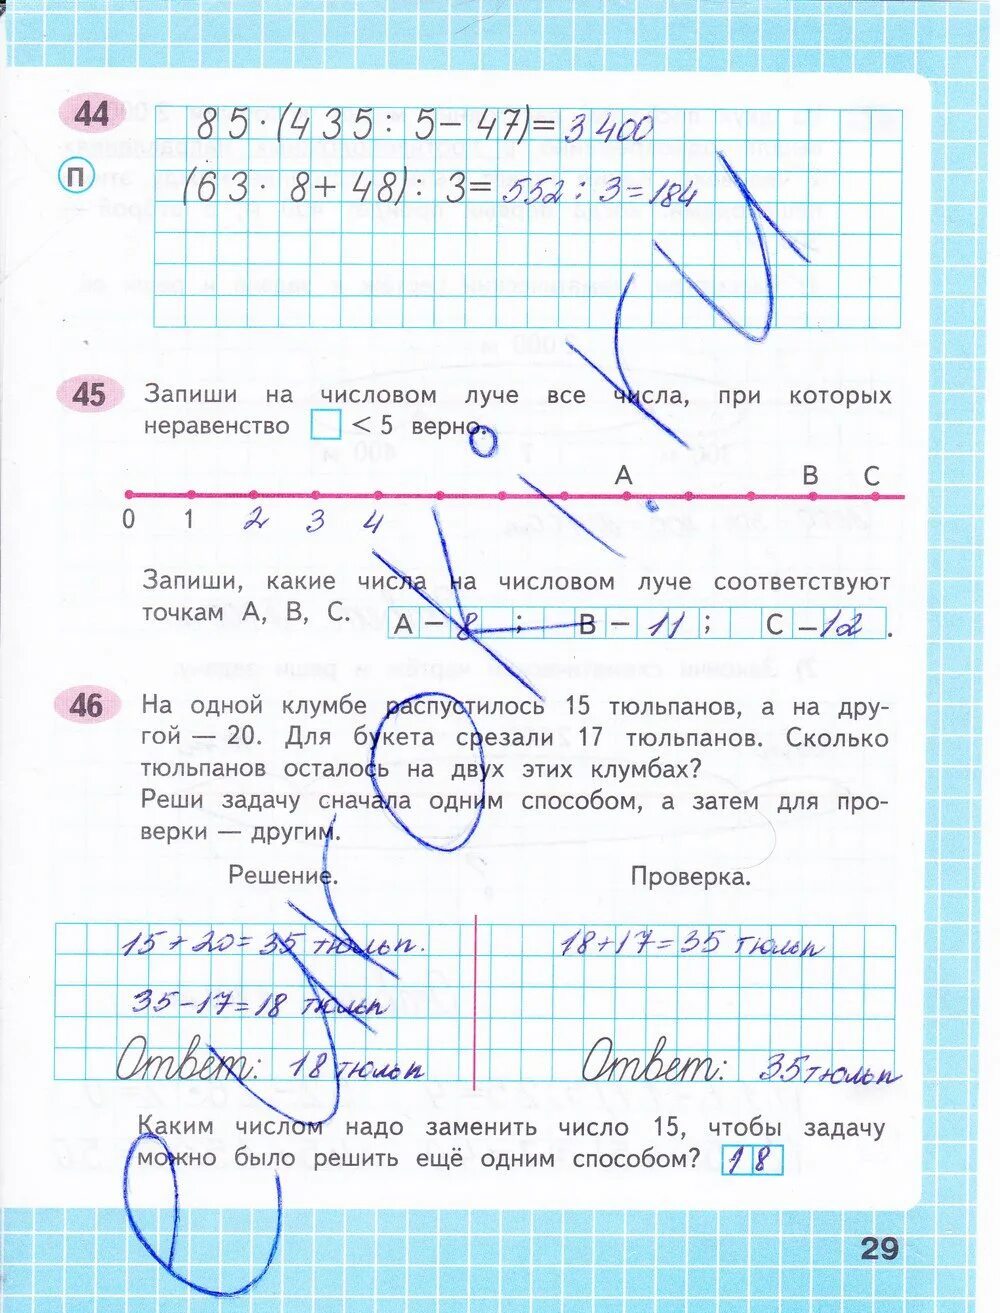 44
85·(435:5-47)=3400
П
(63·8+48):3=552:3=184
45
Запиши на числовом луче все числа, при которых
неравенство < 5 верно.
A B C
0 1 2 3 4
Запиши, какие числа на числовом луче соответствуют
точкам А, В, С. А – 8 ; В – 11 ; С – 12 .
46
На одной клумбе распустилось 15 тюльпанов, а на дру-
гой — 20. Для букета срезали 17 тюльпанов. Сколько
тюльпанов осталось на двух этих клумбах?
Реши задачу сначала одним способом, а затем для про-
верки — другим.
Решение. Проверка.
15+20=35 тюльп. 18+17=35 тюльп
35-17=18 тюльп
Ответ: 18 тюльп Ответ: 35 тюльп
Каким числом надо заменить число 15, чтобы задачу
можно было решить ещё одним способом? 18
29